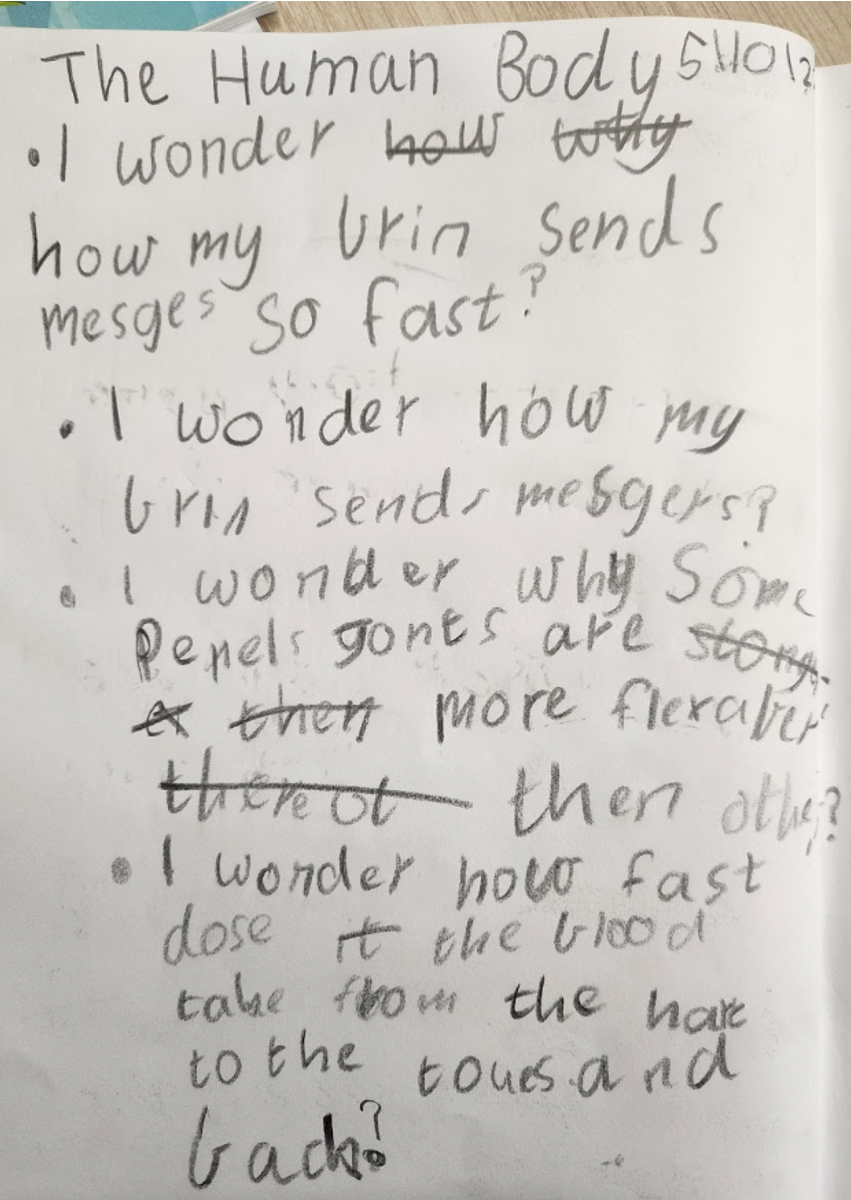 The Human Body
• I wonder how why
how my brin sends
mesges so fast?
• I wonder how my
brin sends mesgers?
• I wonder why Some
Pepels gonts are stong
er then more flexaber
there ot then other?
• I wonder how fast
dose it the blood
take from the hart
to the toues and
back?